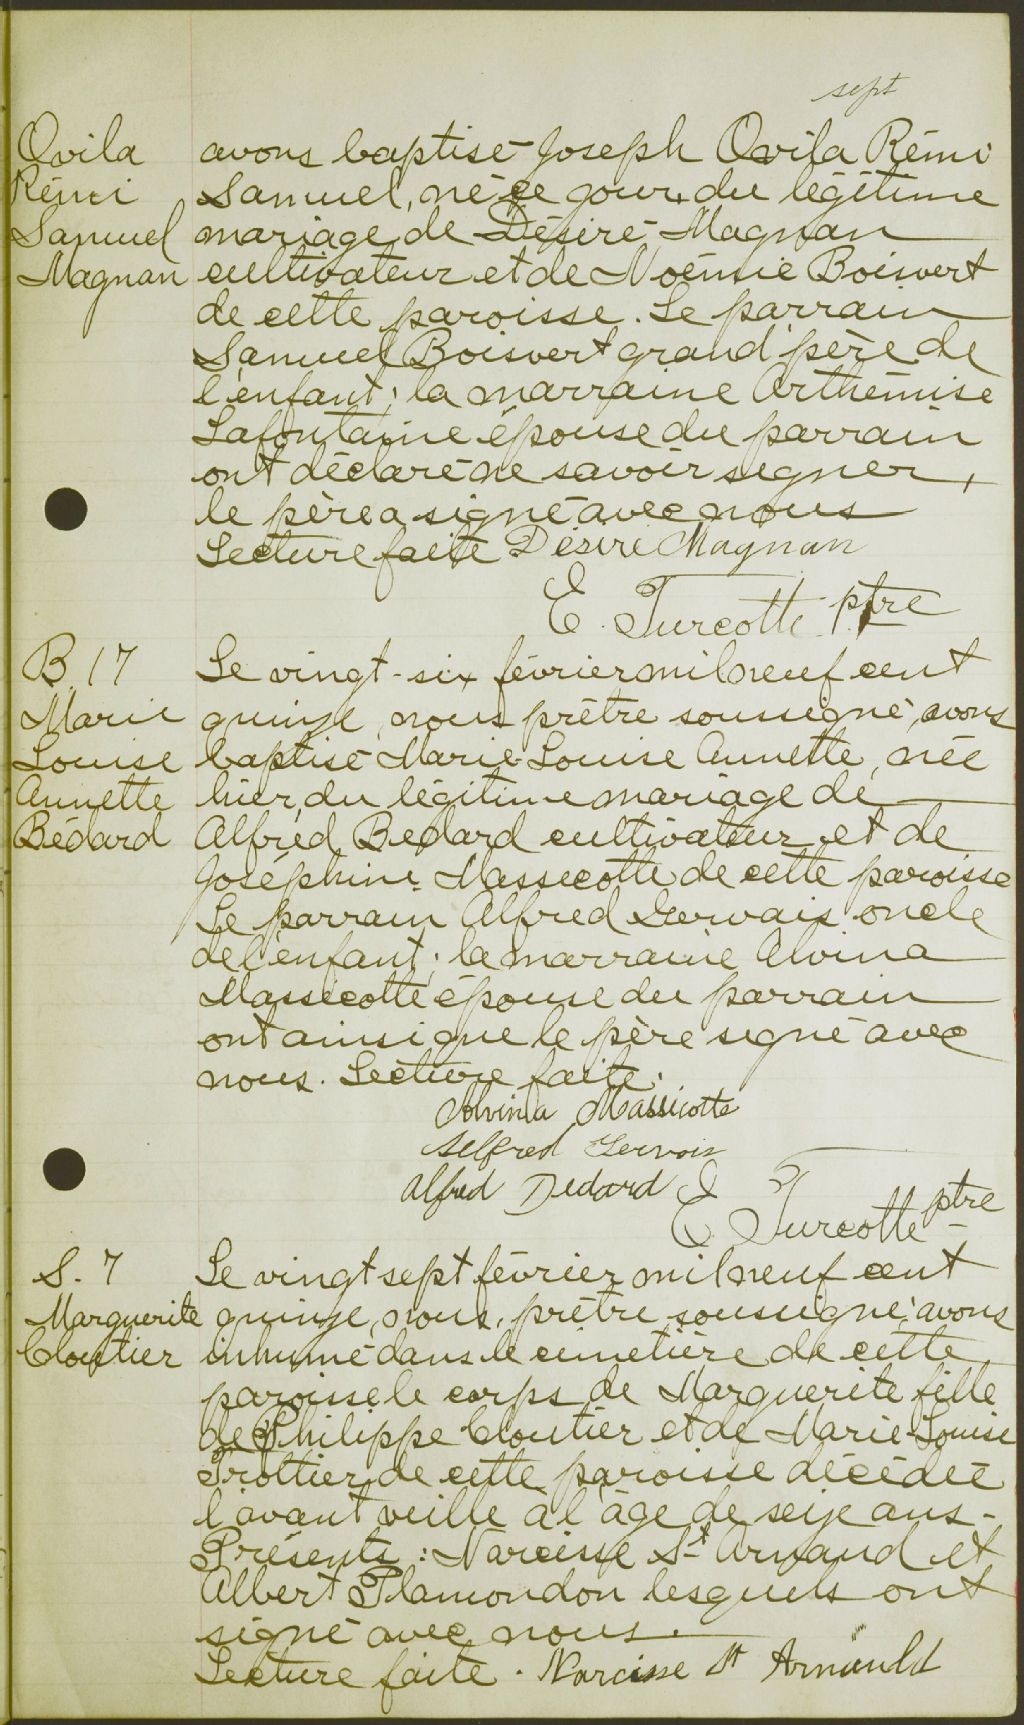 sept
Ovila
Rémi
Samuel
Magnan
avons baptisé Joseph Ovila Rémi
Samuel, né ce jour, du légitime
mariage de Désiré Magnan
cultivateur et de Noémie Boisvert
de cette paroisse. Le parrain
Samuel Boisvert grand père de
l'enfant; la marraine Arthémise
Lafontaine épouse du parrain
ont déclaré ne savoir signer,
le père a signé avec nous
Lecture faite Désiré Magnan
E. Turcotte ptre
B 17
Marie
Louise
Annette
Bédard
Le vingt-six février mil neuf cent
quinze, nous prêtre soussigné, avons
baptisé Marie-Louise Annette, née
hier, du légitime mariage de
Alfred Bédard cultivateur et de
Joséphine Massecotte de cette paroisse
Le parrain Alfred Gervais oncle
de l'enfant; la marraine Alvina
Massecotte épouse du parrain
ont ainsi que le père signé avec
nous. Lecture faite.
Alvina Massicotte
Alfred Gervais
Alfred Bedard E Turcotte ptre
S. 7
Marguerite
Cloutier
Le vingt sept février mil neuf cent
quinze, nous, prêtre soussigné, avons
inhumé dans le cimetière de cette
paroisse le corps de Marguerite fille
de Philippe Cloutier et de Marie-Louise
Trottier de cette paroisse décédée
l'avant veille à l'âge de seize ans.
Présents: Narcisse St Arnaud et
Albert Plamondon lesquels ont
signé avec nous.
Lecture faite. Narcisse St Arnauld